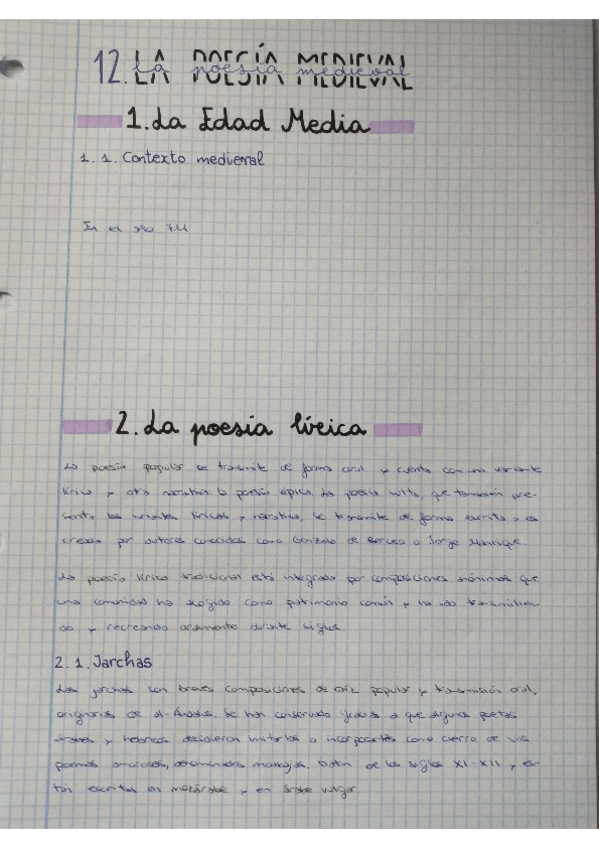 12. LA POESÍA MEDIEVAL
la poesia medieval
1. La Edad Media
1. 1. Contexto medieval
En el año 711
2. La poesia lírica
La poesía popular se transmite de forma oral y cuenta con una variante
lírica y otra narrativa: la poesía épica. La poesía culta, que también pre-
senta las variantes líricas y narrativa, se transmite de forma escrita y es
creada por autores conocidos como Gonzalo de Berceo o Jorge Manrique.
La poesía lírica tradicional está integrada por composiciones anónimas que
una comunidad ha acogido como patrimonio común y ha ido transmitien-
do y recreando oralmente durante siglos.
2. 1. Jarchas
Las jarchas son breves composiciones de raíz popular y transmisión oral,
originarias de al-Ándalus. Se han conservado gracias a que algunos poetas
árabes y hebreos decidieron imitarlas o incorporarlas como cierre de sus
poemas amorosos, denominados moaxajas. Datan de los siglos XI-XII y es-
tán escritas en mozárabe y en árabe vulgar